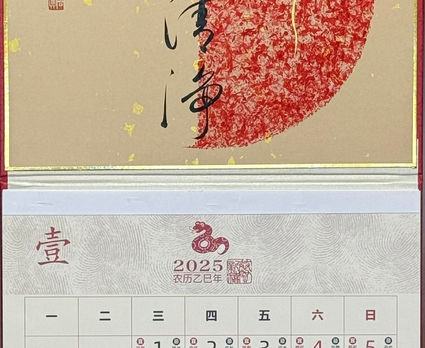 清净
壹
2025
农历乙巳年
一 二 三 四 五 六 日
1 2 3 4 5